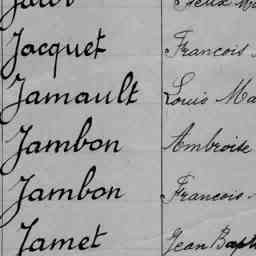 Jacquet François
Jamault Louis Ma
Jambon Ambroise
Jambon François
Jamet Jean Bapt